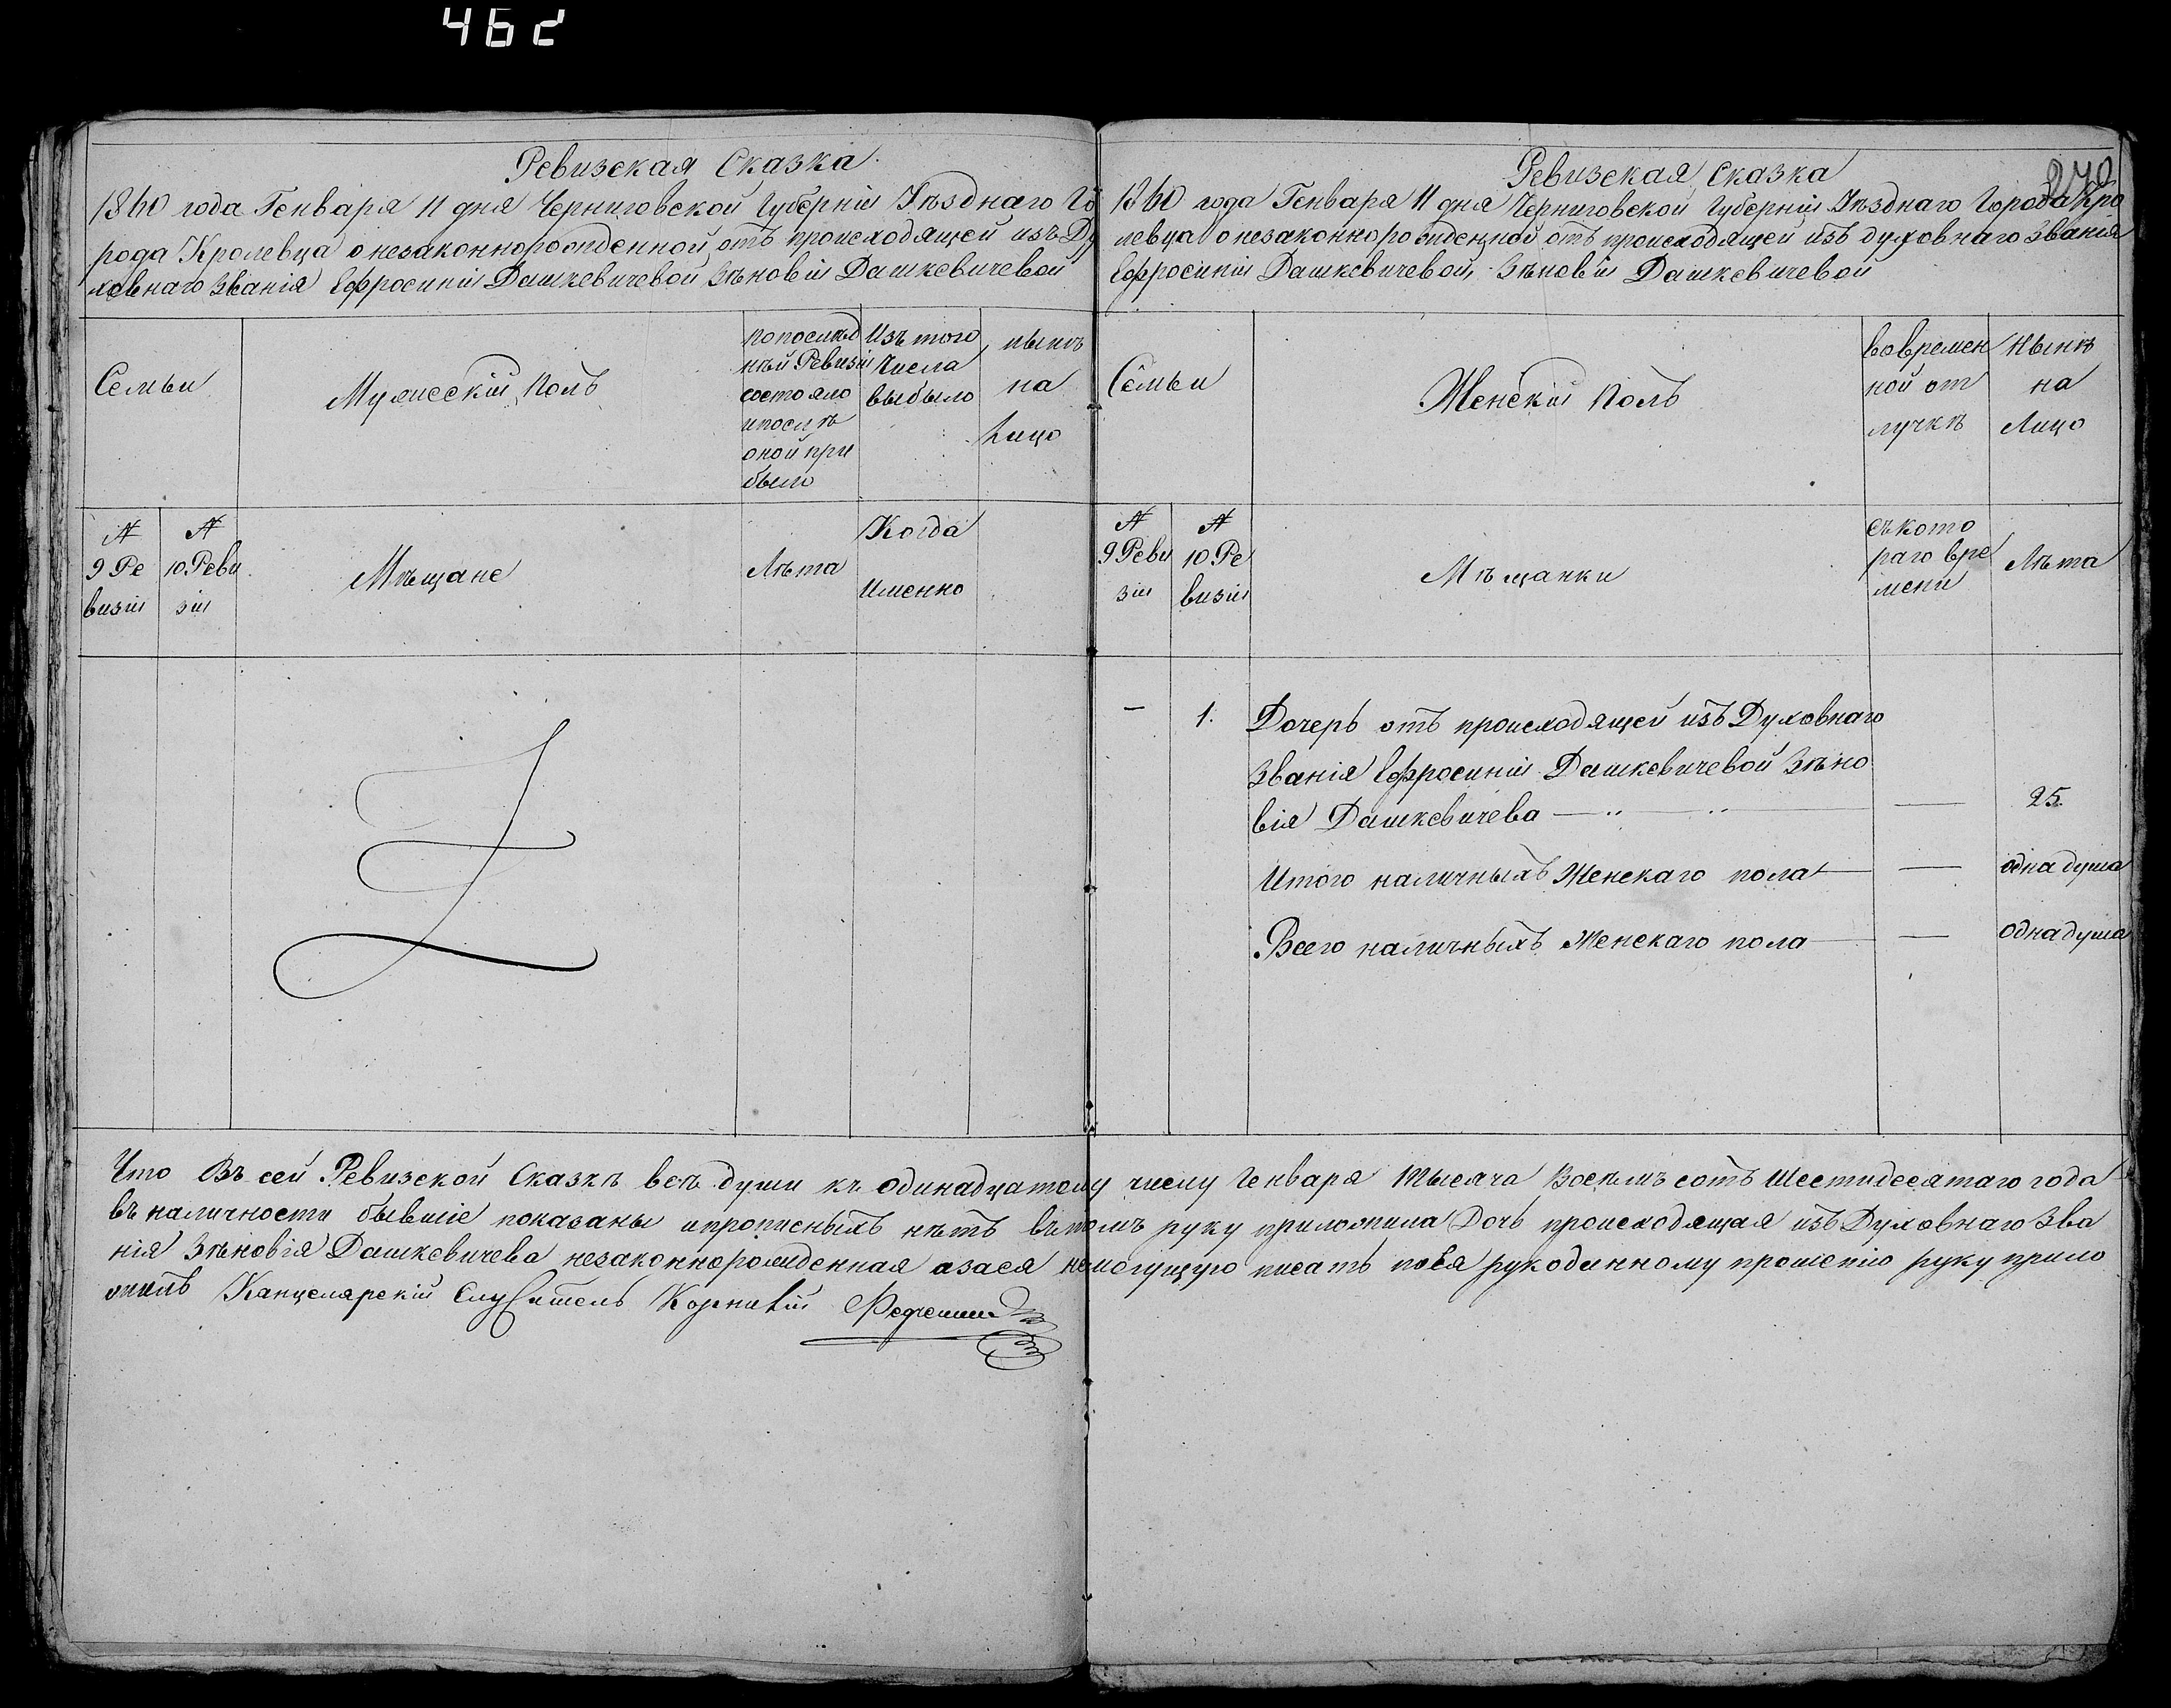 462
Ревизская Сказка.
1860 года Генваря 11 дня Черниговской Губернiи Уѣзднаго Го
рода Кролевца о незаконнорожденной отъ происходящей изъ Ду
ховнаго Званiя Ефросинiи Дашкевичевой Зѣновiи Дашкевичевой
Семьи
Мужескiй Полъ
по послѣд
нѣй Ревизiи
состояло
и послѣ
оной при
было
Изъ того
Числа
выбыло
нынѣ
на
Лицо
№
9 Ре
визiи
№
10 Реви
зiи
Мѣщане
Лѣта
Когда
Именно
Ревизская Сказка
270
1860 года Генваря 11 дня Черниговской Губернiи Уѣзднаго Города Кро
левца о незаконнорожденной отъ происходящей изъ духовнаго Званiя
Ефросинiи Дашкевичевой, Зѣновiи Дашкевичевой
Семьи
Женскiй Полъ
во времен
ной от
лучкѣ
Нынѣ
на
Лицо
№
9 Реви
зiи
№
10 Ре
визiи
Мѣщанки
съ кото
раго вре
мени
Лѣта
— 1. Дочерь отъ происходящей изъ Духовнаго
Званiя Ефросинiи Дашкевичевой Зѣно
вiя Дашкевичева — „ — „ — — 25.
Итого наличныхъ Женскаго пола — — одна душа
Всего наличныхъ Женскаго пола — — одна душа
Что Въ сей Ревизской Сказкѣ всѣ души къ одинадцатому числу Генваря Тысяча Восѣмъ сотъ Шестидесятаго года
въ наличности бывшiе показаны и прописныхъ нѣтъ въ томъ руку приложила Дочь происходящая изъ Духовнаго Зва
нiя Зѣновiя Дашкевичева незаконнорожденная а за ся немогущую писать по ея рукоданному прошенiю руку прило
жилъ Канцелярскiй Служитель Корнилiй